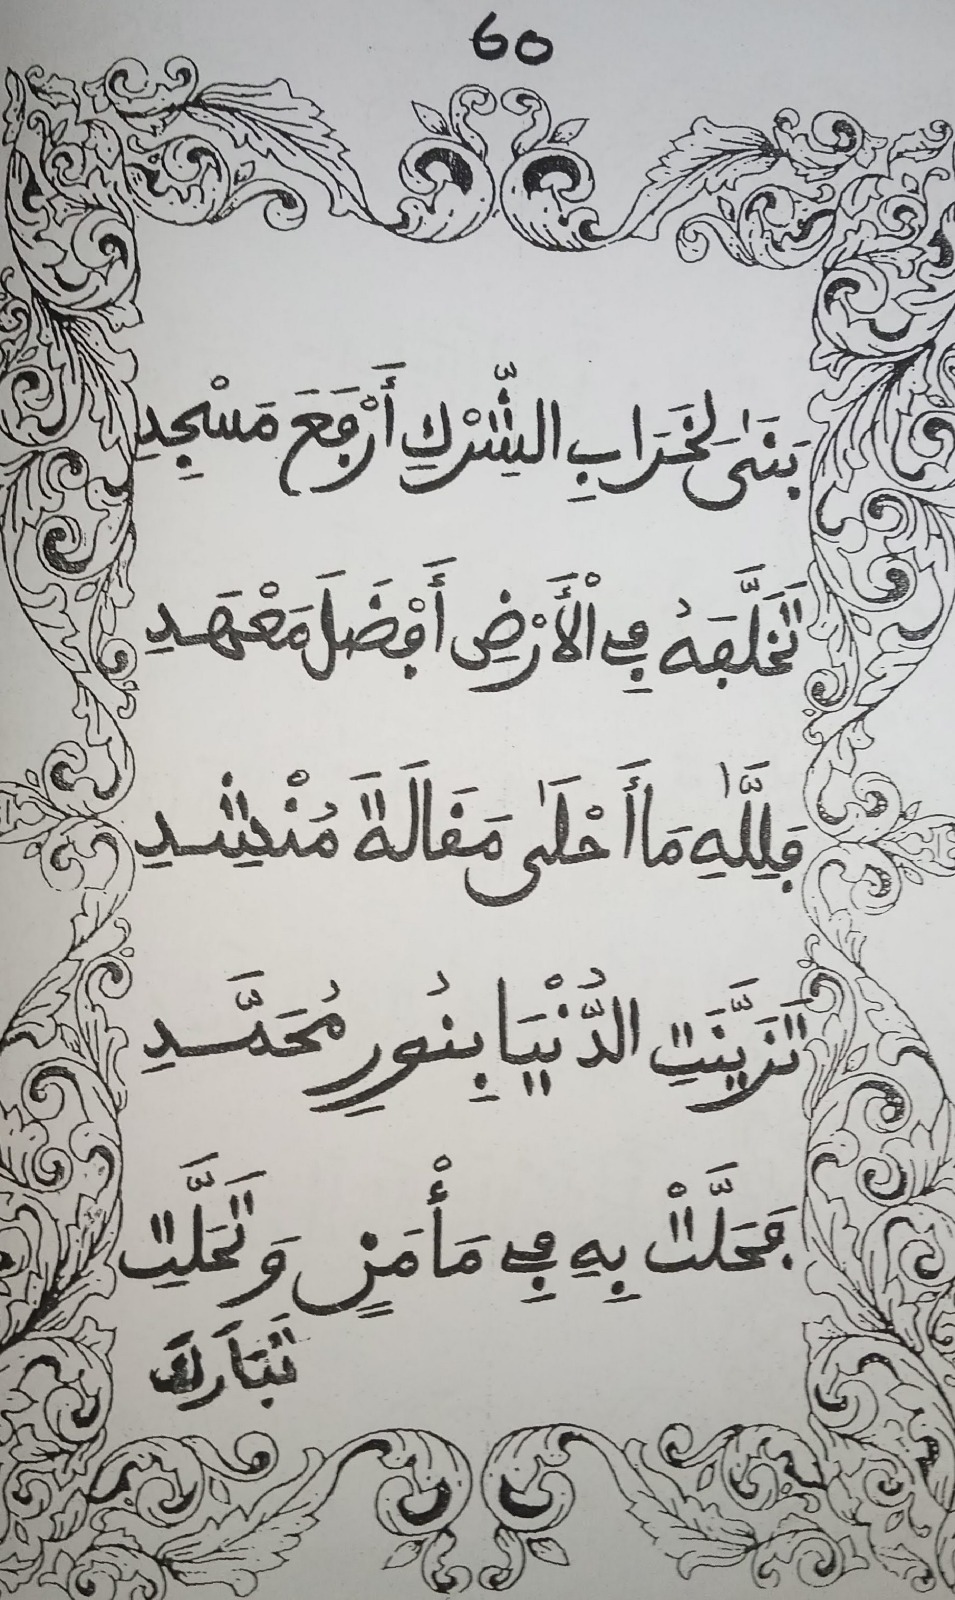 60
بَنَىٰ لِخَرَابِ الشِّرْكِ أَرْفَعَ مَسْجِدِ
تَخَلَّفَهُ فِي الْأَرْضِ أَفْضَلَ مَعْهَدِ
فَلِلَّهِ مَا أَحْلَىٰ مَقَالَةَ مُنْشِدِ
تَزَيَّنَتِ الدُّنْيَا بِنُورِ مُحَمَّدِ
فَحَلَّتْ بِهِ فِي مَأْمَنٍ وَتَحَلَّتِ
تَبَارَكَ